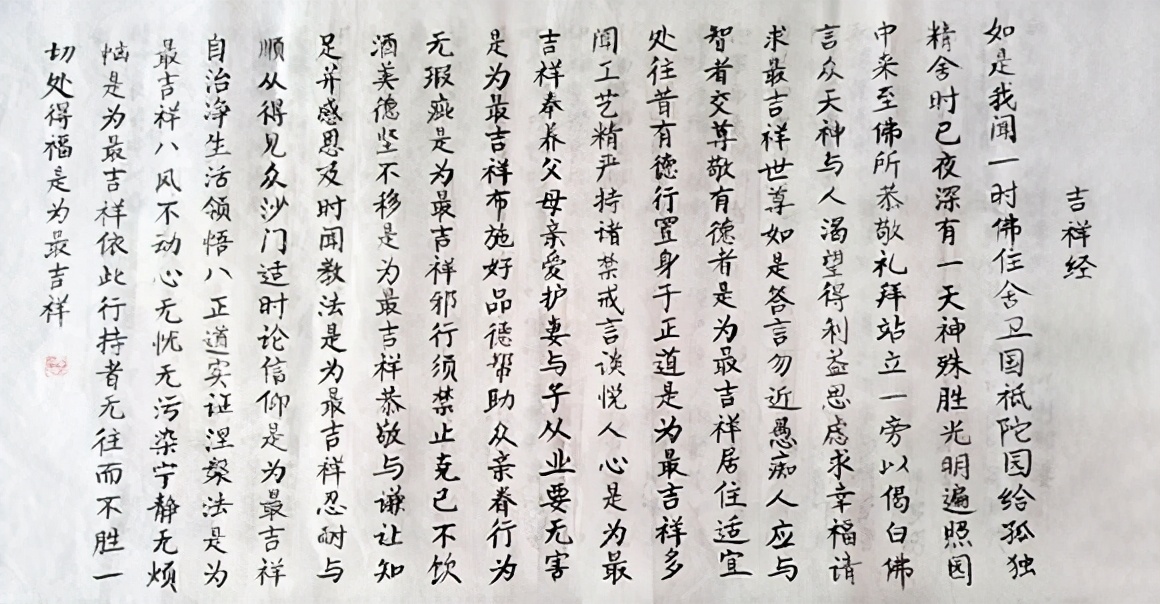 吉祥经
如是我闻一时佛住舍卫国祗陀园给孤独
精舍时已夜深有一天神殊胜光明遍照园
中来至佛所恭敬礼拜站立一旁以偈白佛
言众天神与人渴望得利益思虑求幸福请
求最吉祥世尊如是答言勿近愚痴人应与
智者交尊敬有德者是为最吉祥居住适宜
处往昔有德行置身于正道是为最吉祥多
闻工艺精严持诸禁戒言谈悦人心是为最
吉祥奉养父母亲爱护妻与子从业要无害
是为最吉祥布施好品德帮助众亲眷行为
无瑕疵是为最吉祥邪行须禁止克己不饮
酒美德坚不移是为最吉祥恭敬与谦让知
足并感恩及时闻教法是为最吉祥忍耐与
顺从得见众沙门适时论信仰是为最吉祥
自治净生活领悟八正道实证涅槃法是为
最吉祥八风不动心无忧无污染宁静无烦
恼是为最吉祥依此行持者无往而不胜一
切处得福是为最吉祥